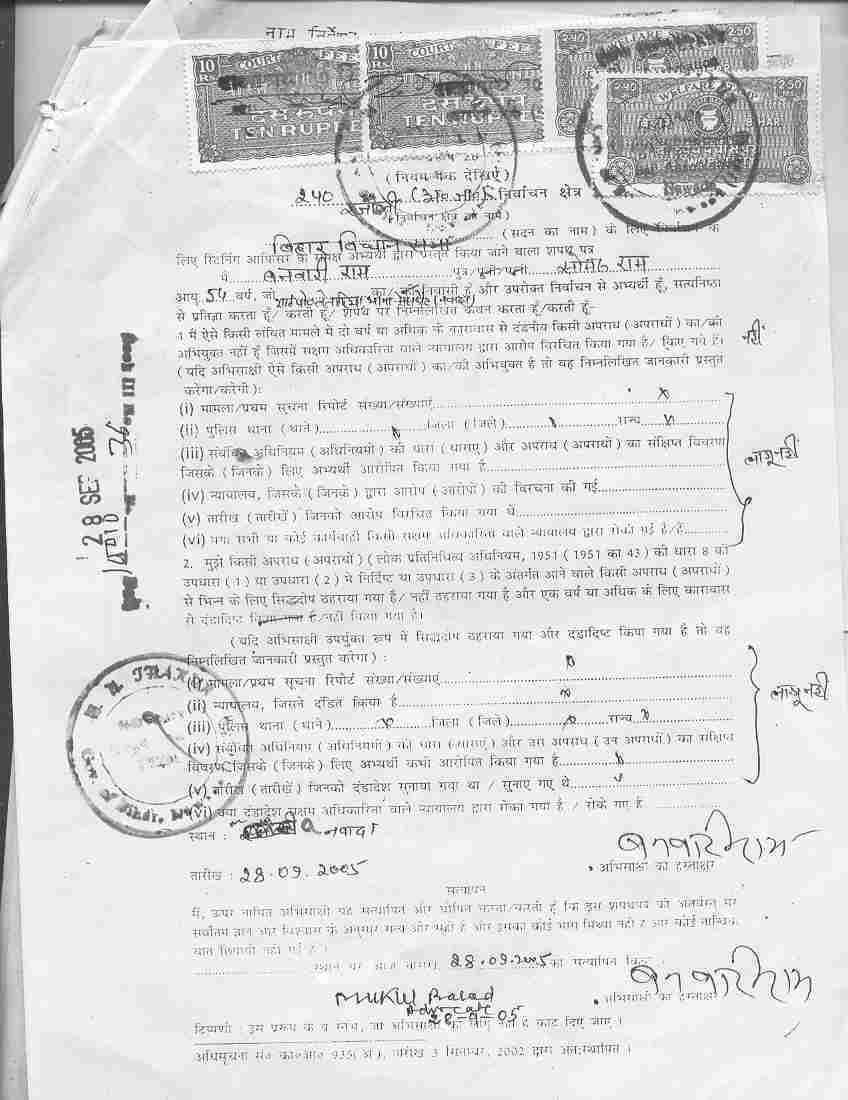 नाम निर्देशन
10 Rs COURT FEE
दस रुपये
TEN RUPEES
10 Rs COURT FEE
दस रुपये
TEN RUPEES
2.50 WELFARE 2.50
2.50 WELFARE 2.50
BIHAR
(नियम 4क देखिए)
240 रजौली (अ० जा०) निर्वाचन क्षेत्र
(निर्वाचन क्षेत्र का नाम)
बिहार विधान सभा (सदन का नाम) के लिए निर्वाचन के
लिए रिटर्निंग आफिसर के समक्ष अभ्यर्थी द्वारा प्रस्तुत किया जाने वाला शपथ पत्र
मैं बनवारी राम पुत्र/पुत्री/पत्नी राम
आयु 54 वर्ष, जो का/की निवासी हूँ और उपरोक्त निर्वाचन से अभ्यर्थी हूँ, सत्यनिष्ठा
से प्रतिज्ञा करता हूँ/ करती हूँ/ शपथ पर निम्नलिखित कथन करता हूँ/करती हूँ:-
1 मैं ऐसे किसी लंबित मामले में दो वर्ष या अधिक के कारावास से दंडनीय किसी अपराध (अपराधों) का/की
अभियुक्त नहीं हूँ जिसमें सक्षम अधिकारिता वाले न्यायालय द्वारा आरोप विरचित किया गया है/ किए गए हैं। नहीं
(यदि अभिसाक्षी ऐसे किसी अपराध (अपराधों) का/की अभियुक्त है तो वह निम्नलिखित जानकारी प्रस्तुत
करेगा/करेगी):
(i) मामला/प्रथम सूचना रिपोर्ट संख्या/संख्याएं x
(ii) पुलिस थाना (थाने) जिला (जिले) राज्य
(iii) संबंधित अधिनियम (अधिनियमों) की धारा (धाराएं) और अपराध (अपराधों) का संक्षिप्त विवरण
जिसके (जिनके) लिए अभ्यर्थी आरोपित किया गया है लागू नहीं
(iv) न्यायालय, जिसके (जिनके) द्वारा आरोप (आरोपों) की विरचना की गई
(v) तारीख (तारीखें) जिनको आरोप विरचित किया गया थे
(vi) क्या सभी या कोई कार्यवाही किसी सक्षम अधिकारिता वाले न्यायालय द्वारा रोकी गई है/हैं
28 SEP 2005
2. मुझे किसी अपराध (अपराधों) (लोक प्रतिनिधित्व अधिनियम, 1951 (1951 का 43) की धारा 8 की
उपधारा (1) या उपधारा (2) में निर्दिष्ट या उपधारा (3) के अंतर्गत आने वाले किसी अपराध (अपराधों)
से भिन्न के लिए सिद्धदोष ठहराया गया है/ नहीं ठहराया गया है और एक वर्ष या अधिक के लिए कारावास
से दंडादिष्ट किया गया है/नहीं किया गया है।
(यदि अभिसाक्षी उपर्युक्त रूप में सिद्धदोष ठहराया गया और दंडादिष्ट किया गया है तो वह
निम्नलिखित जानकारी प्रस्तुत करेगा) :
(i) मामला/प्रथम सूचना रिपोर्ट संख्या/संख्याएं
(ii) न्यायालय, जिसने दंडित किया है
(iii) पुलिस थाना (थाने) जिला (जिले) राज्य लागू नहीं
(iv) संबंधित अधिनियम (अधिनियमों) की धारा (धाराएं) और उस अपराध (उन अपराधों) का संक्षिप्त
विवरण जिसके (जिनके) लिए अभ्यर्थी कभी आरोपित किया गया है
(v) तारीख (तारीखें) जिनको दंडादेश सुनाया गया था / सुनाए गए थे
(vi) क्या दंडादेश सक्षम अधिकारिता वाले न्यायालय द्वारा रोका गया है / रोके गए हैं
स्थान : नवादा
बनवारी राम
तारीख : 28.09.2005 अभिसाक्षी का हस्ताक्षर
सत्यापन
मैं, ऊपर नामित अभिसाक्षी यह सत्यापित और घोषित करता/करती हूँ कि इस शपथपत्र की अंतर्वस्तु मेरे
सर्वोत्तम ज्ञान और विश्वास के अनुसार सत्य और सही है और इसका कोई भाग मिथ्या नहीं है और कोई तात्विक
बात छिपायी नहीं गई है।
स्थान पर आज तारीख 28.09.2005 का सत्यापित किया
बनवारी राम
अभिसाक्षी का हस्ताक्षर
Mukul
Advocate
05
टिप्पणी : इस प्ररूप के वे स्तंभ, जो अभिसाक्षी को लागू नहीं है काट दिए जाएं।
अधिसूचना सं० का०आ० 935(अ), तारीख 3 सितम्बर, 2002 द्वारा अंतःस्थापित।